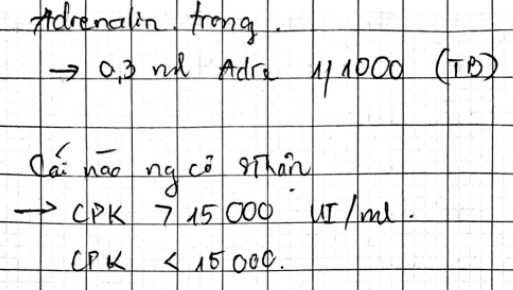 Adrenalin. trong.
→ 0,3 ml Adre 1/1000 (TB)
Cái nào ng cơ sthận
→ CPK > 15 000 UI/ml.
CPK < 15 000.